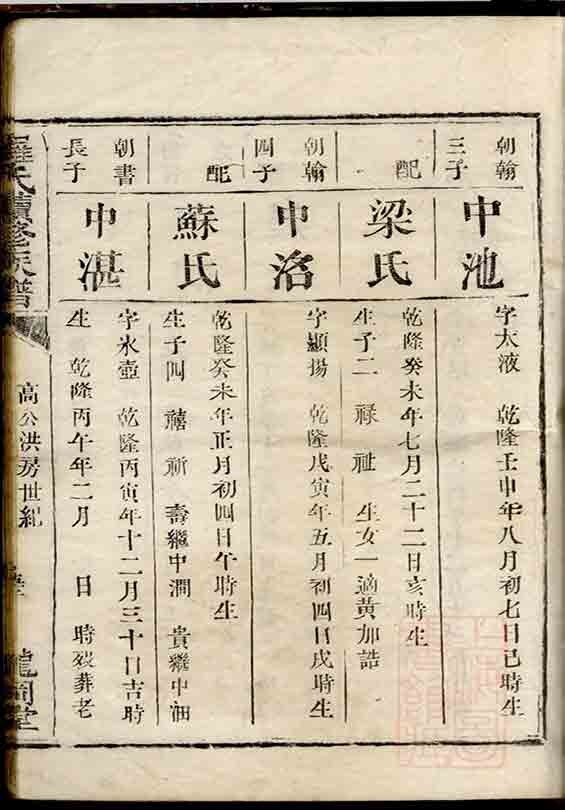 朝翰三子
中池
字太液 乾隆壬申年八月初七日巳時生
配
梁氏
乾隆癸未年七月二十二日亥時生
生子二 祿 祉 生女一適黃加誥
朝翰四子
中洛
字顯揚 乾隆戊寅年五月初四日戌時生
配
蘇氏
乾隆癸未年正月初四日午時生
生子四 禧 祈 壽繼中澗 貴繼中
朝書長子
中湛
字氷壺 乾隆丙寅年十二月三十日吉時
生 乾隆丙午年二月 日 時歿葬老
羅氏續修族譜
高公洪房世紀
堂